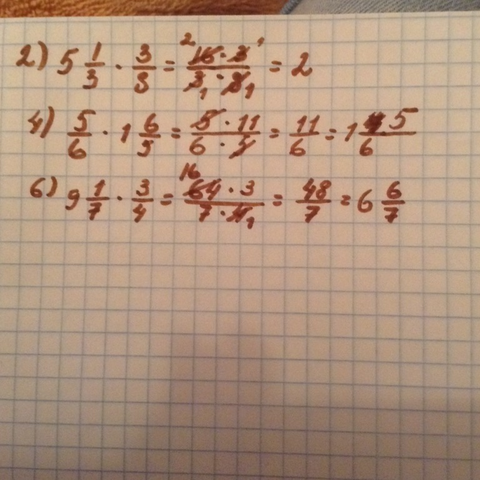 2) 5 1/3 · 3/8 = 16·3/3·8 = 2
4) 5/6 · 1 6/5 = 5·11/6·5 = 11/6 = 1 5/6
6) 9 1/7 · 3/4 = 64·3/7·4 = 48/7 = 6 6/7